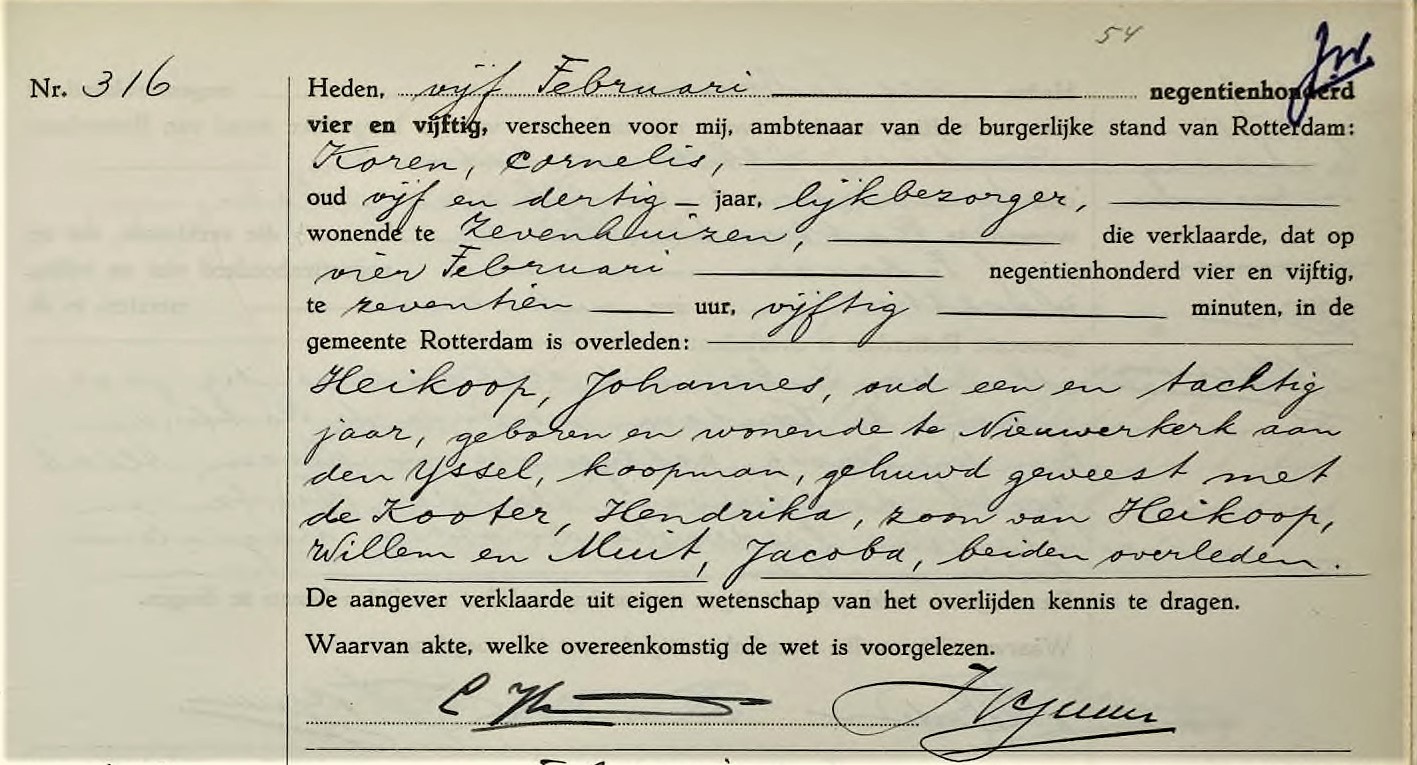 54
Nr. 316
Heden, vijf Februari negentienhonderd
vier en vijftig, verscheen voor mij, ambtenaar van de burgerlijke stand van Rotterdam:
Koren, Cornelis,
oud vijf en dertig jaar, lijkbezorger,
wonende te Zevenhuizen, die verklaarde, dat op
vier Februari negentienhonderd vier en vijftig,
te zeventien uur, vijftig minuten, in de
gemeente Rotterdam is overleden:
Heikoop, Johannes, oud een en tachtig
jaar, geboren en wonende te Nieuwerkerk aan
den Yssel, koopman, gehuwd geweest met
de Kooter, Hendrika, zoon van Heikoop,
Willem en Muit, Jacoba, beiden overleden.
De aangever verklaarde uit eigen wetenschap van het overlijden kennis te dragen.
Waarvan akte, welke overeenkomstig de wet is voorgelezen.